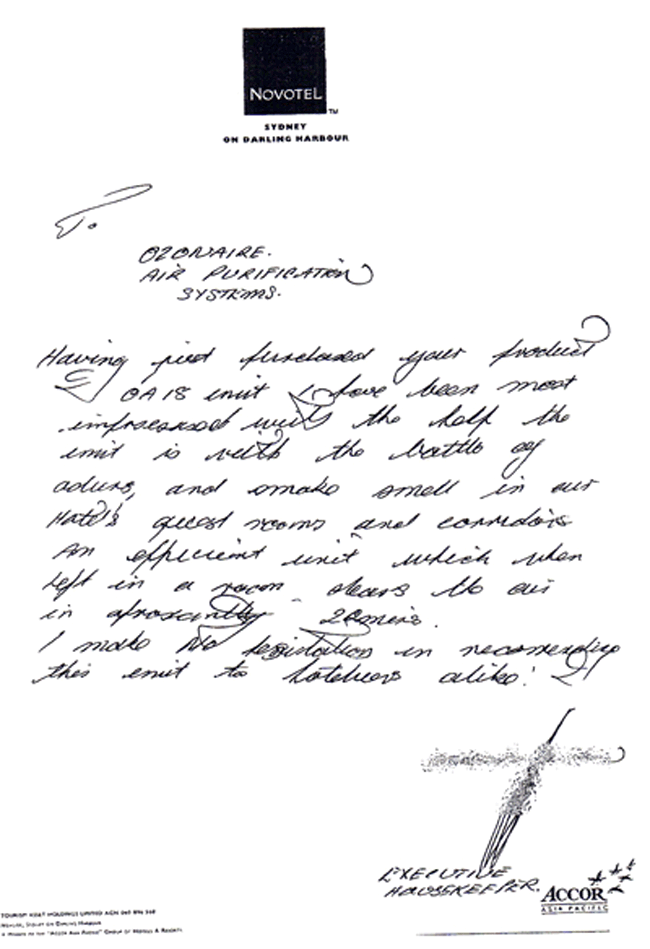 NOVOTEL
TM
SYDNEY
ON DARLING HARBOUR
To
OZONAIRE.
AIR PURIFICATION
SYSTEMS.
Having just purchased your product
OA18 unit I have been most
impressed with the help the
unit is with the battle of
adurs, and smoke smell in our
Hotel's guest rooms and corridors
An efficient unit which when
left in a room clears the air
in 20mins.
I make no in recomending
this unit to hoteliers alike!
EXECUTIVE
HOUSEKEEPER.
ACCOR
ASIA PACIFIC
TOURIST ASSET HOLDINGS LIMITED ACN
NOVOTEL SYDNEY ON DARLING HARBOUR
A MEMBER OF THE "ACCOR ASIA PACIFIC" GROUP OF HOTELS & RESORTS